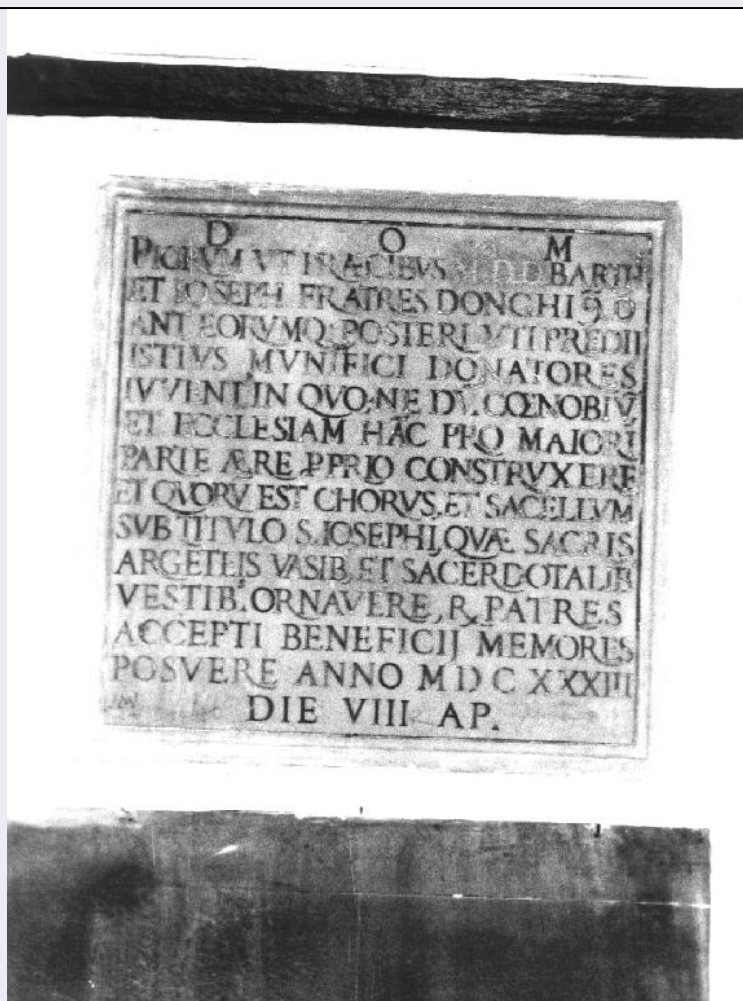 D O M
PIORVM VT PRÆCIBVS D.D. BARTH
ET IOSEPH FRATRES DONGHI
ANT EORVMQ; POSTERI, VTI PREDII
ISTIVS MVNIFICI DONATORES
IVVENT, IN QVO, NE DV, CŒNOBIV̄
ET ECCLESIAM HĀC PRO MAIORI
PARTE ÆRE PPRIO CONSTRVXERE
ET QVORV EST CHORVS, ET SACELLVM
SVB TITVLO S. IOSEPHI, QVÆ SACRIS
ARGETEIS VASIB, ET SACERDOTALIB
VESTIB. ORNAVERE, R. PATRES
ACCEPTI BENEFICIJ MEMORES
POSVERE ANNO MDCXXXIII
DIE VIII AP.